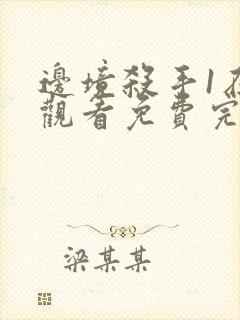 邊境殺手1在
觀看免費完
梁某某